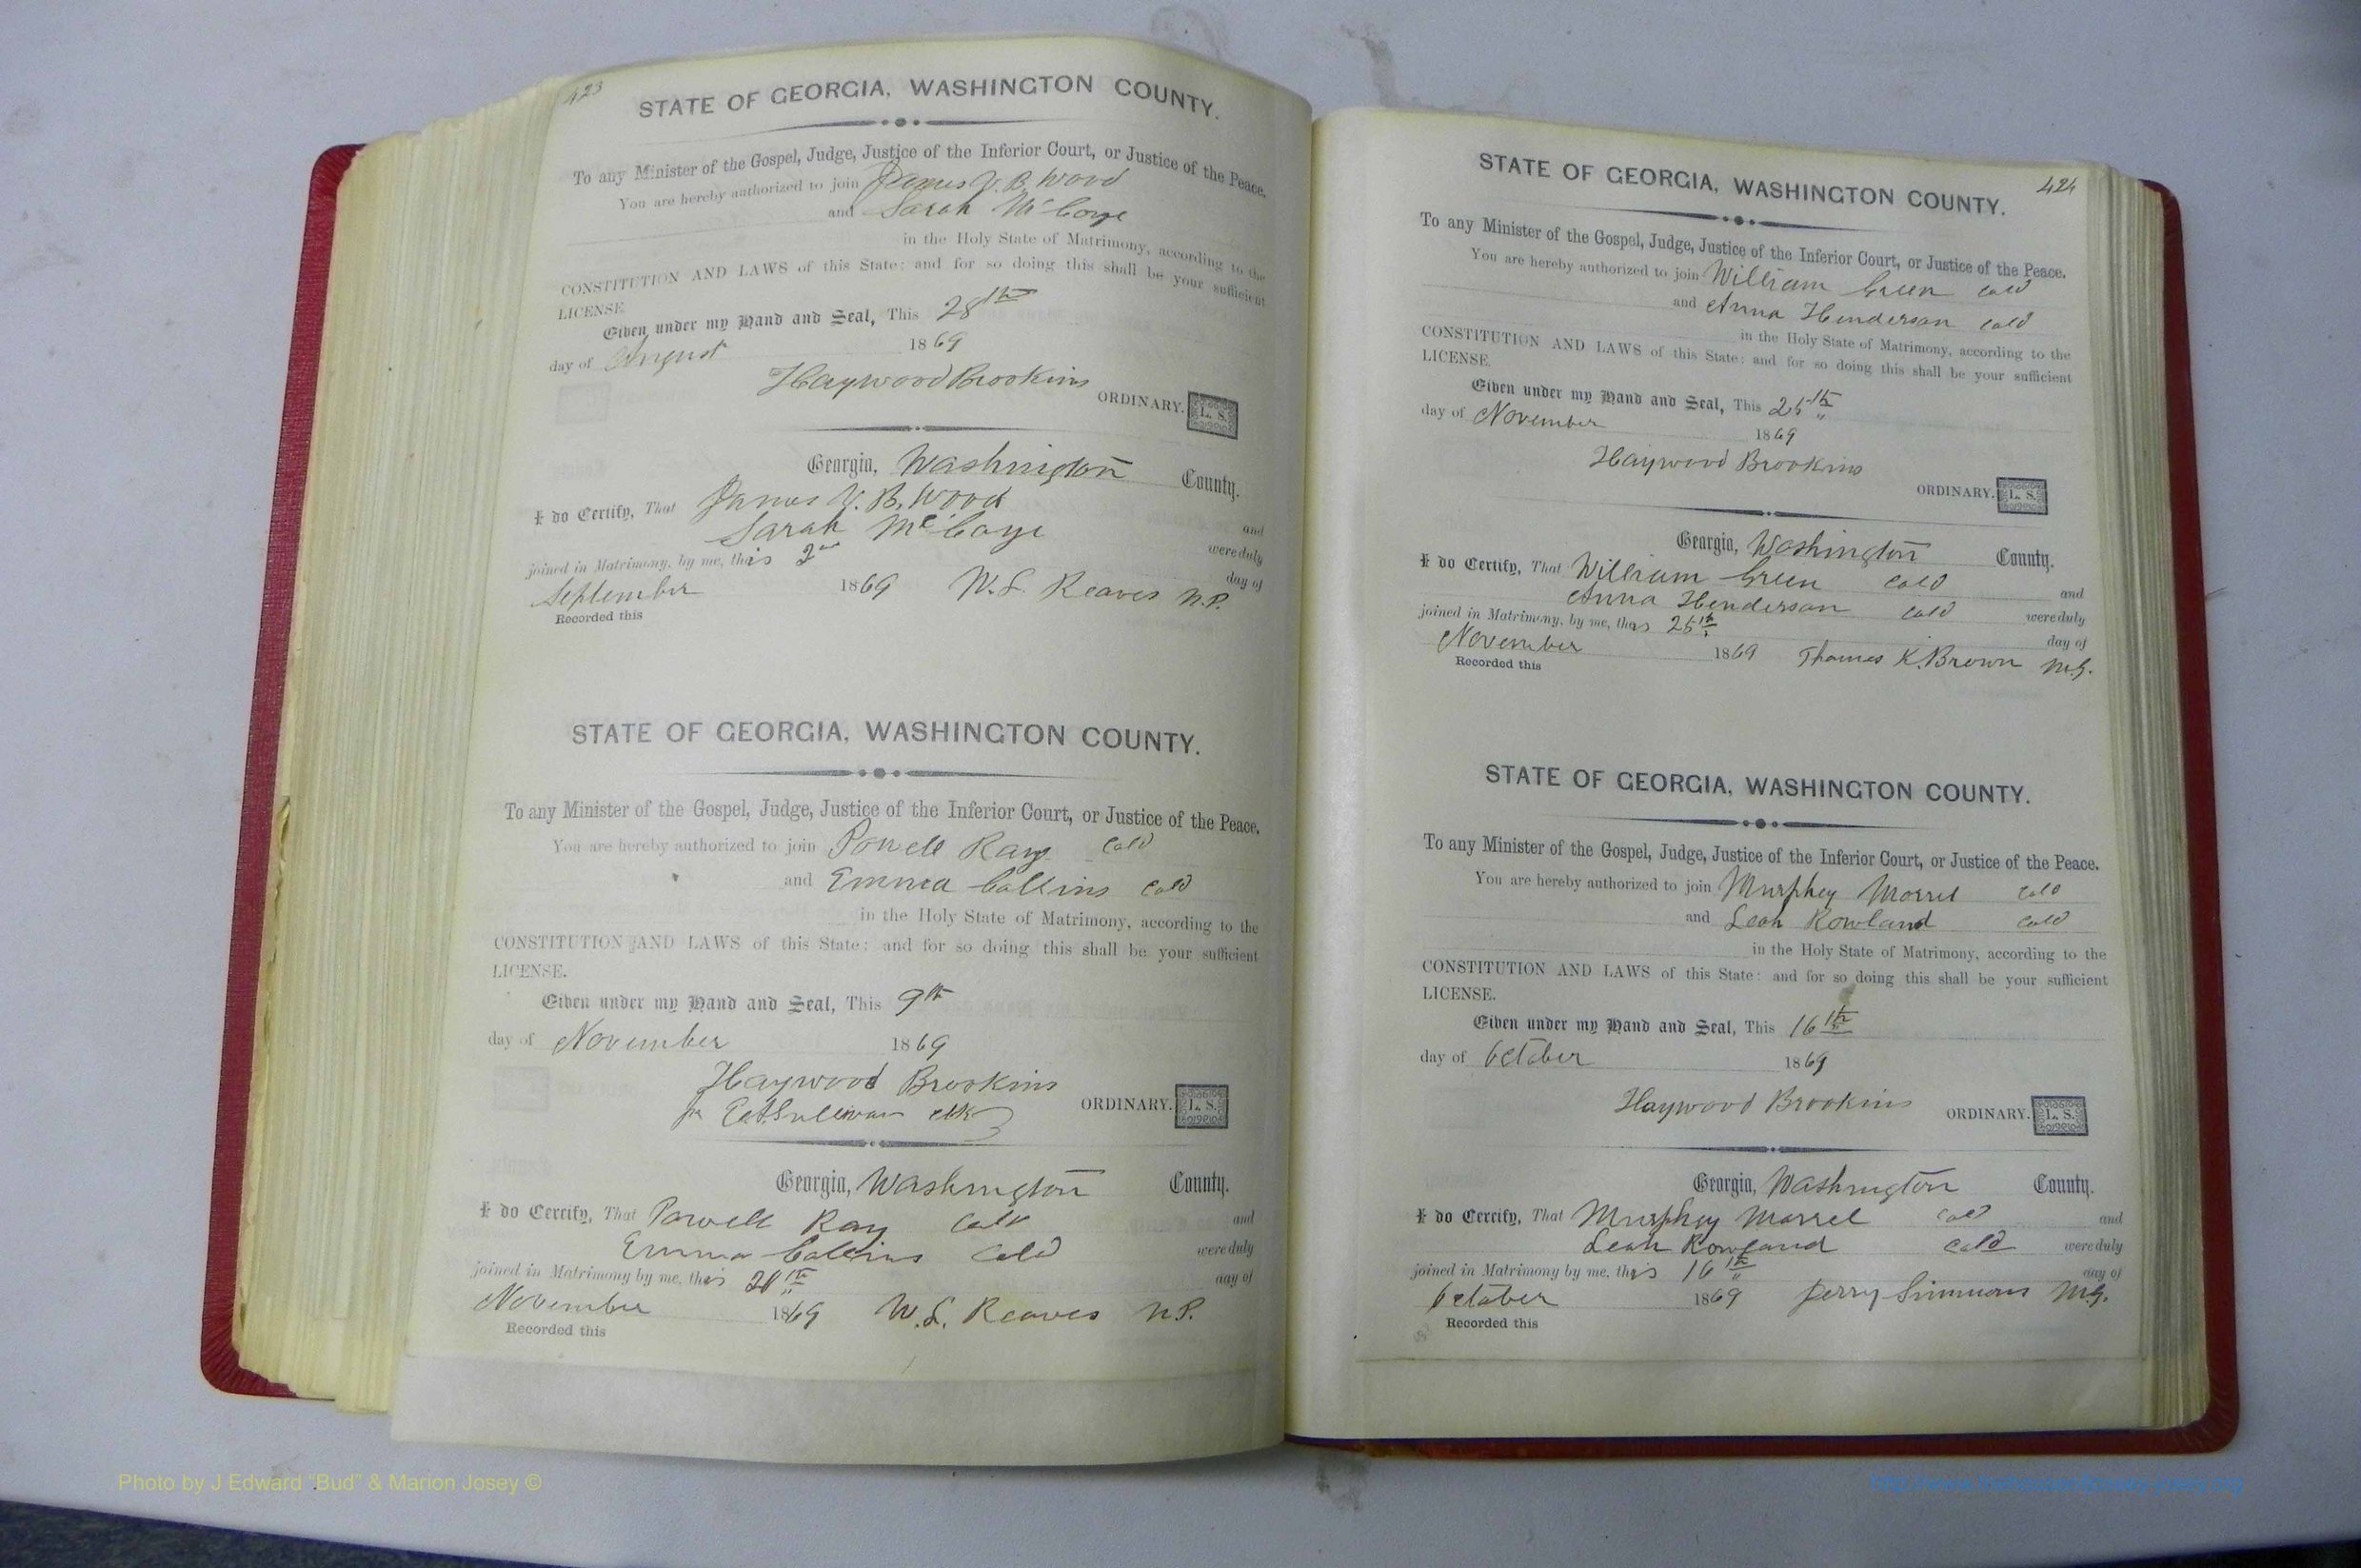 423
STATE OF GEORGIA, WASHINGTON COUNTY.
To any Minister of the Gospel, Judge, Justice of the Inferior Court, or Justice of the Peace.
You are hereby authorized to join James V. B. Wood
and Sarah McCoye
in the Holy State of Matrimony, according to the
CONSTITUTION AND LAWS of this State: and for so doing this shall be your sufficient
LICENSE.
Given under my Hand and Seal, This 28th
day of August 1869
Haywood Brookins
ORDINARY. L. S.
Georgia, Washington County.
I do Certify, That James V. B. Wood and
Sarah McCoye were duly
joined in Matrimony, by me, this 2nd day of
September 1869 W. L. Reaves N.P.
Recorded this
STATE OF GEORGIA, WASHINGTON COUNTY.
To any Minister of the Gospel, Judge, Justice of the Inferior Court, or Justice of the Peace.
You are hereby authorized to join Powell Kay Cold
and Emma Collins Cold
in the Holy State of Matrimony, according to the
CONSTITUTION AND LAWS of this State: and for so doing this shall be your sufficient
LICENSE.
Given under my Hand and Seal, This 9th
day of November 1869
Haywood Brookins
Sullivan clk
ORDINARY. L. S.
Georgia, Washington County.
I do Cercify, That Powell Kay Cold and
Emma Collins Cold were duly
joined in Matrimony by me, this day of
November 1869 W. L. Reaves N.P.
Recorded this
424
STATE OF GEORGIA, WASHINGTON COUNTY.
To any Minister of the Gospel, Judge, Justice of the Inferior Court, or Justice of the Peace.
You are hereby authorized to join William Green Cold
and Anna Henderson Cold
in the Holy State of Matrimony, according to the
CONSTITUTION AND LAWS of this State: and for so doing this shall be your sufficient
LICENSE.
Given under my Hand and Seal, This 25th
day of November 1869
Haywood Brookins
ORDINARY. L. S.
Georgia, Washington County.
I do Certify, That William Green Cold and
Anna Henderson Cold were duly
joined in Matrimony, by me, this 25th day of
November 1869 Thomas K. Brown M.G.
Recorded this
STATE OF GEORGIA, WASHINGTON COUNTY.
To any Minister of the Gospel, Judge, Justice of the Inferior Court, or Justice of the Peace.
You are hereby authorized to join Murphey Morrel Cold
and Leah Rowland Cold
in the Holy State of Matrimony, according to the
CONSTITUTION AND LAWS of this State: and for so doing this shall be your sufficient
LICENSE.
Given under my Hand and Seal, This 16th
day of October 1869
Haywood Brookins
ORDINARY. L. S.
Georgia, Washington County.
I do Cercify, That Murphey Morrel Cold and
Leah Rowland Cold were duly
joined in Matrimony by me, this 16th day of
October 1869 Jerry Simmons M.G.
Recorded this
Photo by J Edward "Bud" & Marion Josey ©